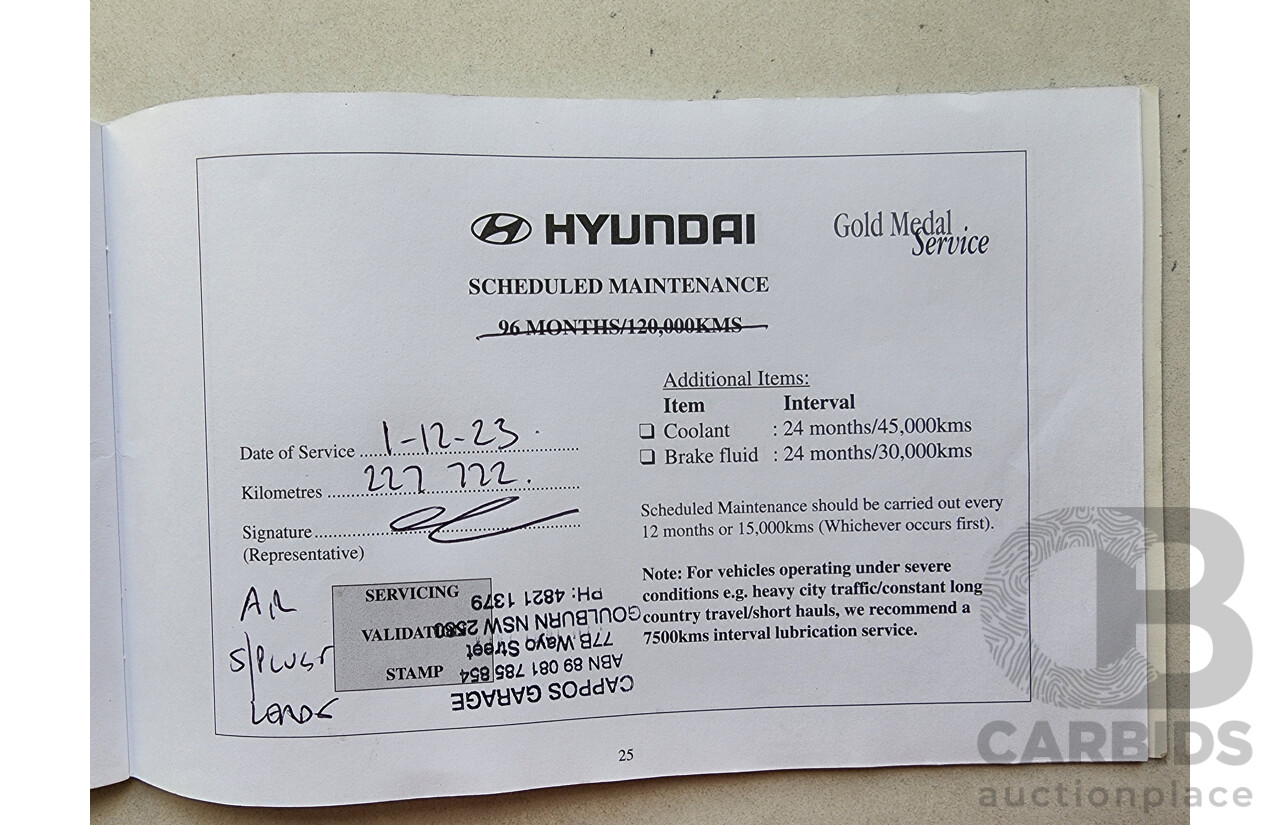 HYUNDAI
Gold Medal
Service
SCHEDULED MAINTENANCE
96 MONTHS/120,000KMS
Additional Items:
Item Interval
❏ Coolant : 24 months/45,000kms
❏ Brake fluid : 24 months/30,000kms
Date of Service 1-12-23
Kilometres 227 722.
Signature
(Representative)
Scheduled Maintenance should be carried out every
12 months or 15,000kms (Whichever occurs first).
Note: For vehicles operating under severe
conditions e.g. heavy city traffic/constant long
country travel/short hauls, we recommend a
7500kms interval lubrication service.
S/PLUGS
LEADS
SERVICING
VALIDATION
STAMP
CAPPOS GARAGE
ABN 89 081 785 854
77B Wayo Street
GOULBURN NSW 2580
PH: 4821 1379
25
CARBIDS
auctionplace